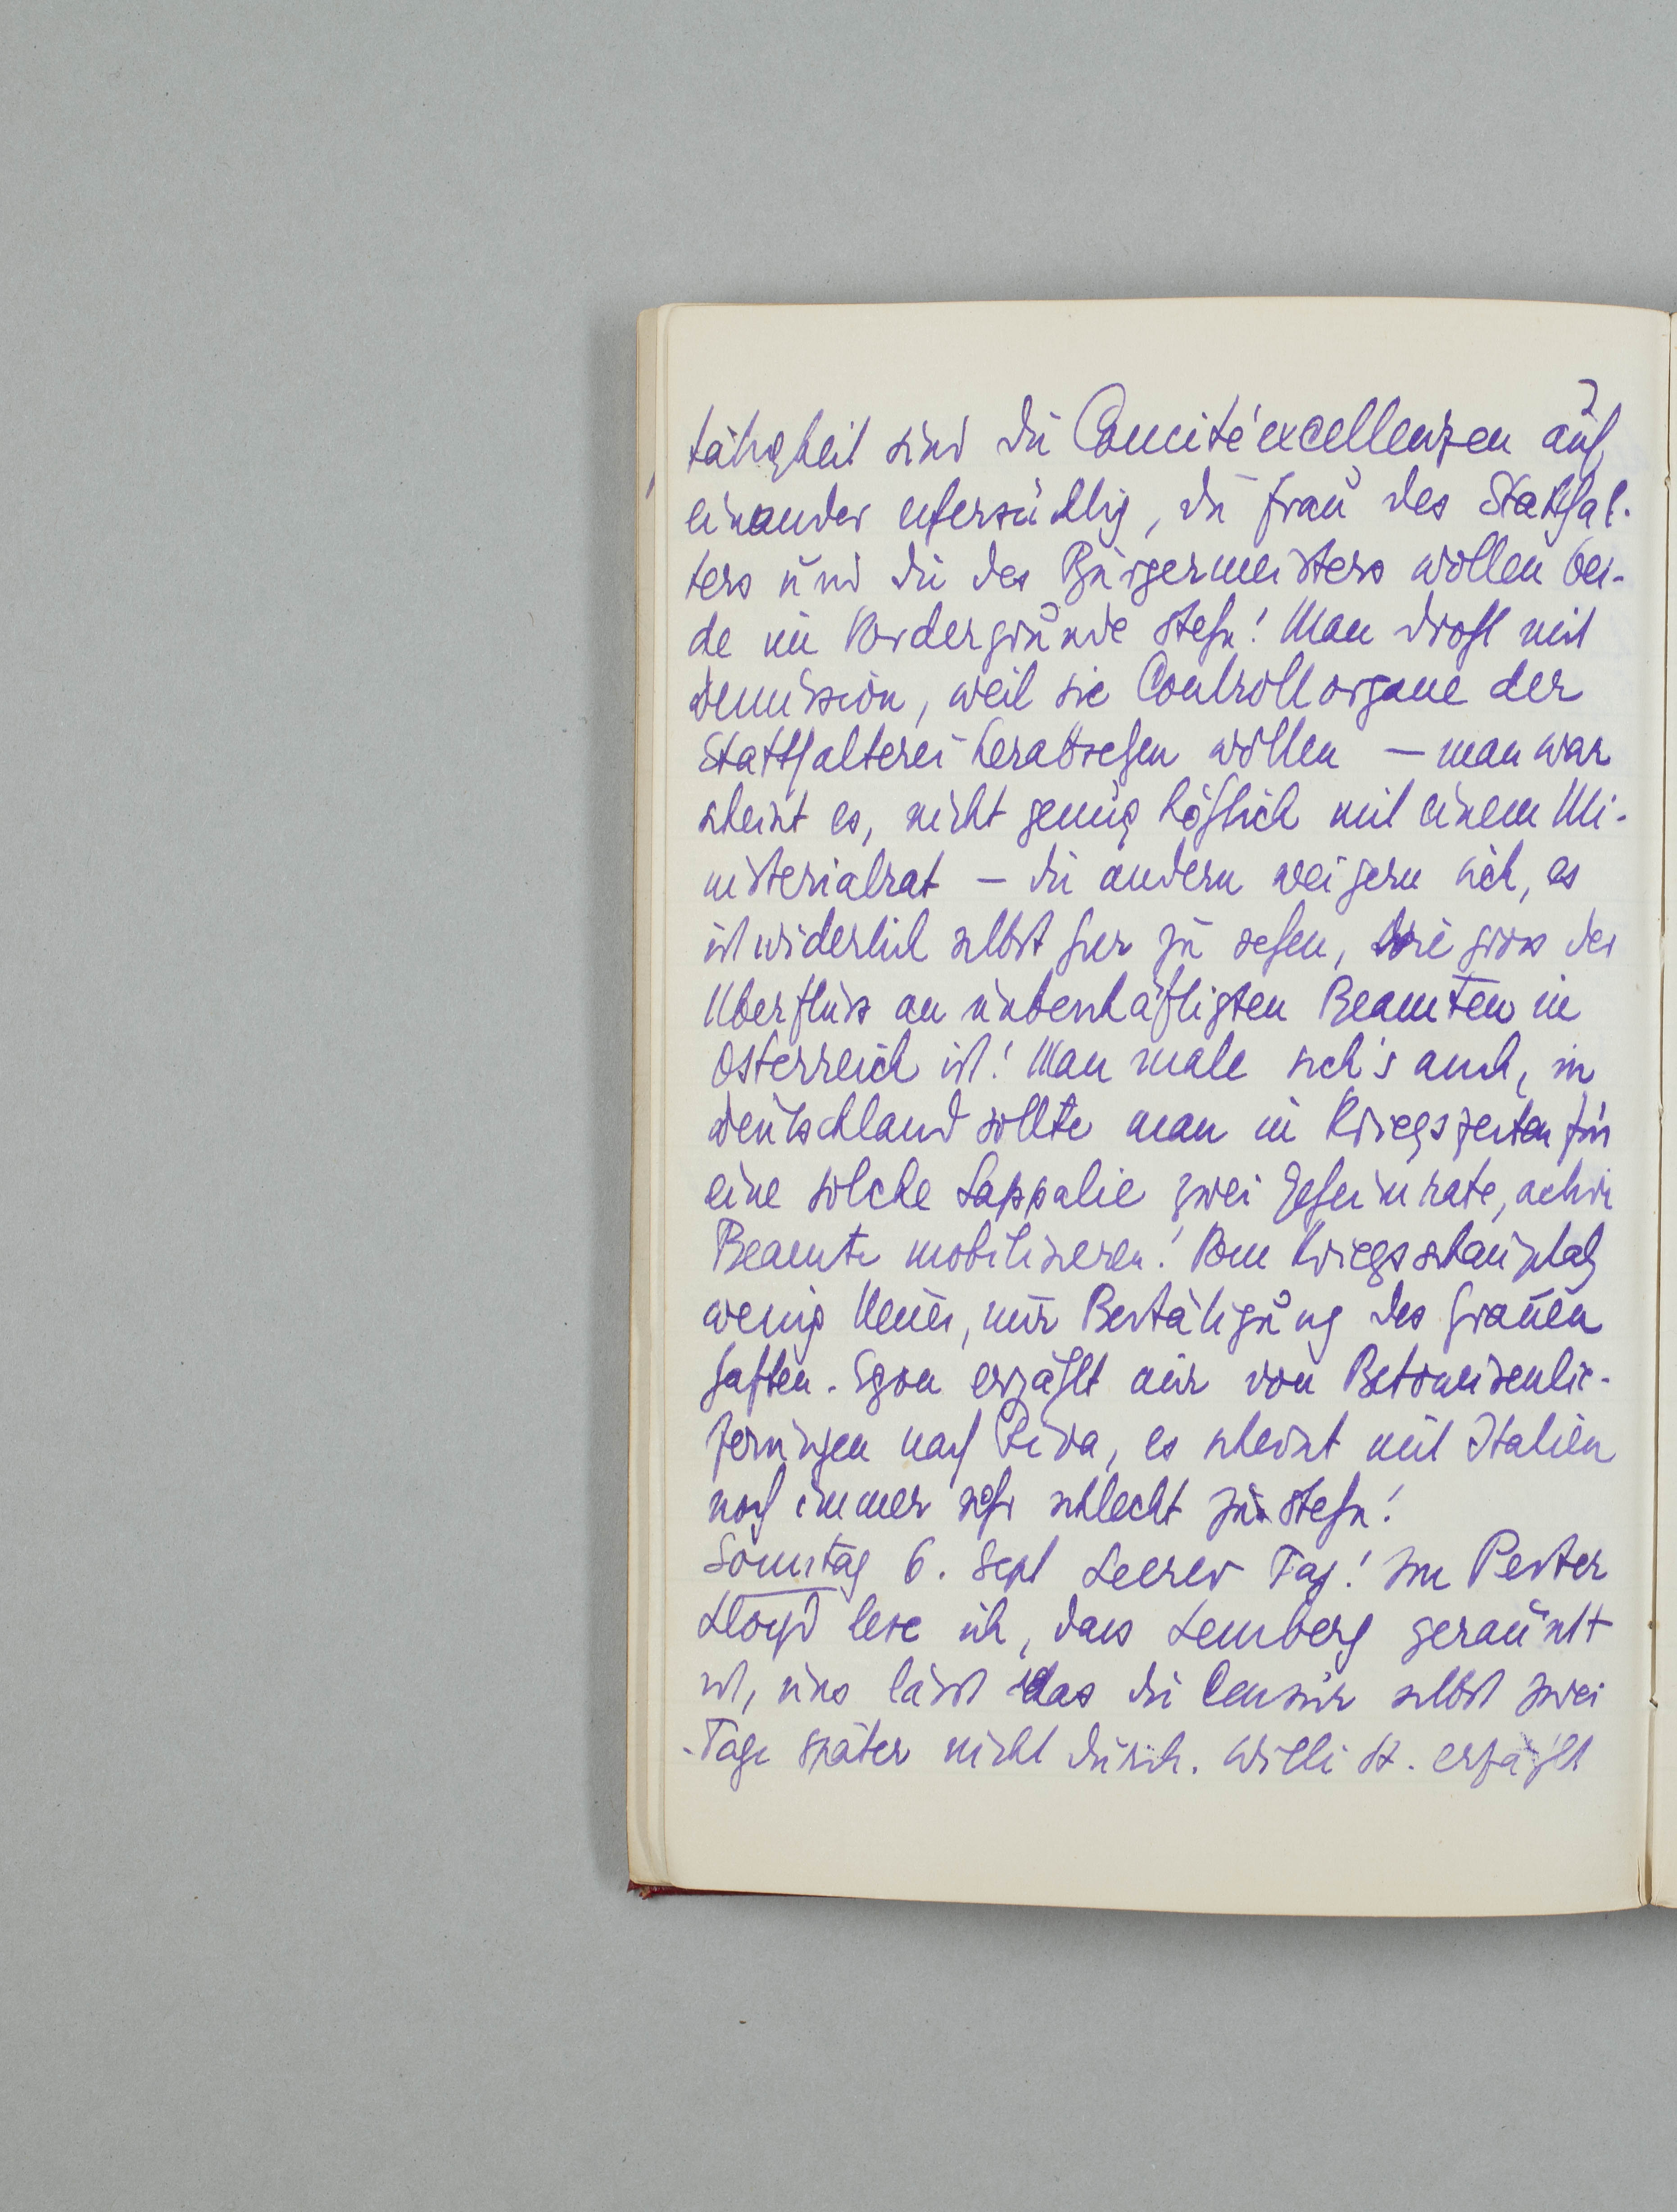 tätigkeit sind die Comitéexcellenzen auf
einander eifersüchtig, die Frau des Statthal-
ters und die des Bürgermeisters wollen bei-
de im Vordergrunde stehn! Man droht mit
Demission, weil sie Controllorgane der
Statthalterei herabsehen wollen – man war
scheint es, nicht genug höflich mit einem Mi-
nisterialrat – die andern weigern sich, es
ist widerlich selbst hier zu sehen, wie gross der
Überfluss an unbeschäftigten Beamten in
Österreich ist! Man male sich's auch, in
Deutschland sollte man in Kriegszeiten für
eine solche Lappalie zwei Geheimrate, achtzig
Beamte mobilisieren! Vom Kriegsschauplatz
wenig Neues, nur Bestätigung des Grauen
haften. Egon erzählt mir von Betonnisenlie-
ferungen nach Riva, es scheint mit Italien
noch immer sehr schlecht zu stehn!
Sonntag 6. Sept Leerer Tag! Im Pester
Lloyd lese ich, dass Lemberg geräumt
ist, uns lässt das die Censur selbst zwei
Tage später nicht durch. Willi St. erzählt